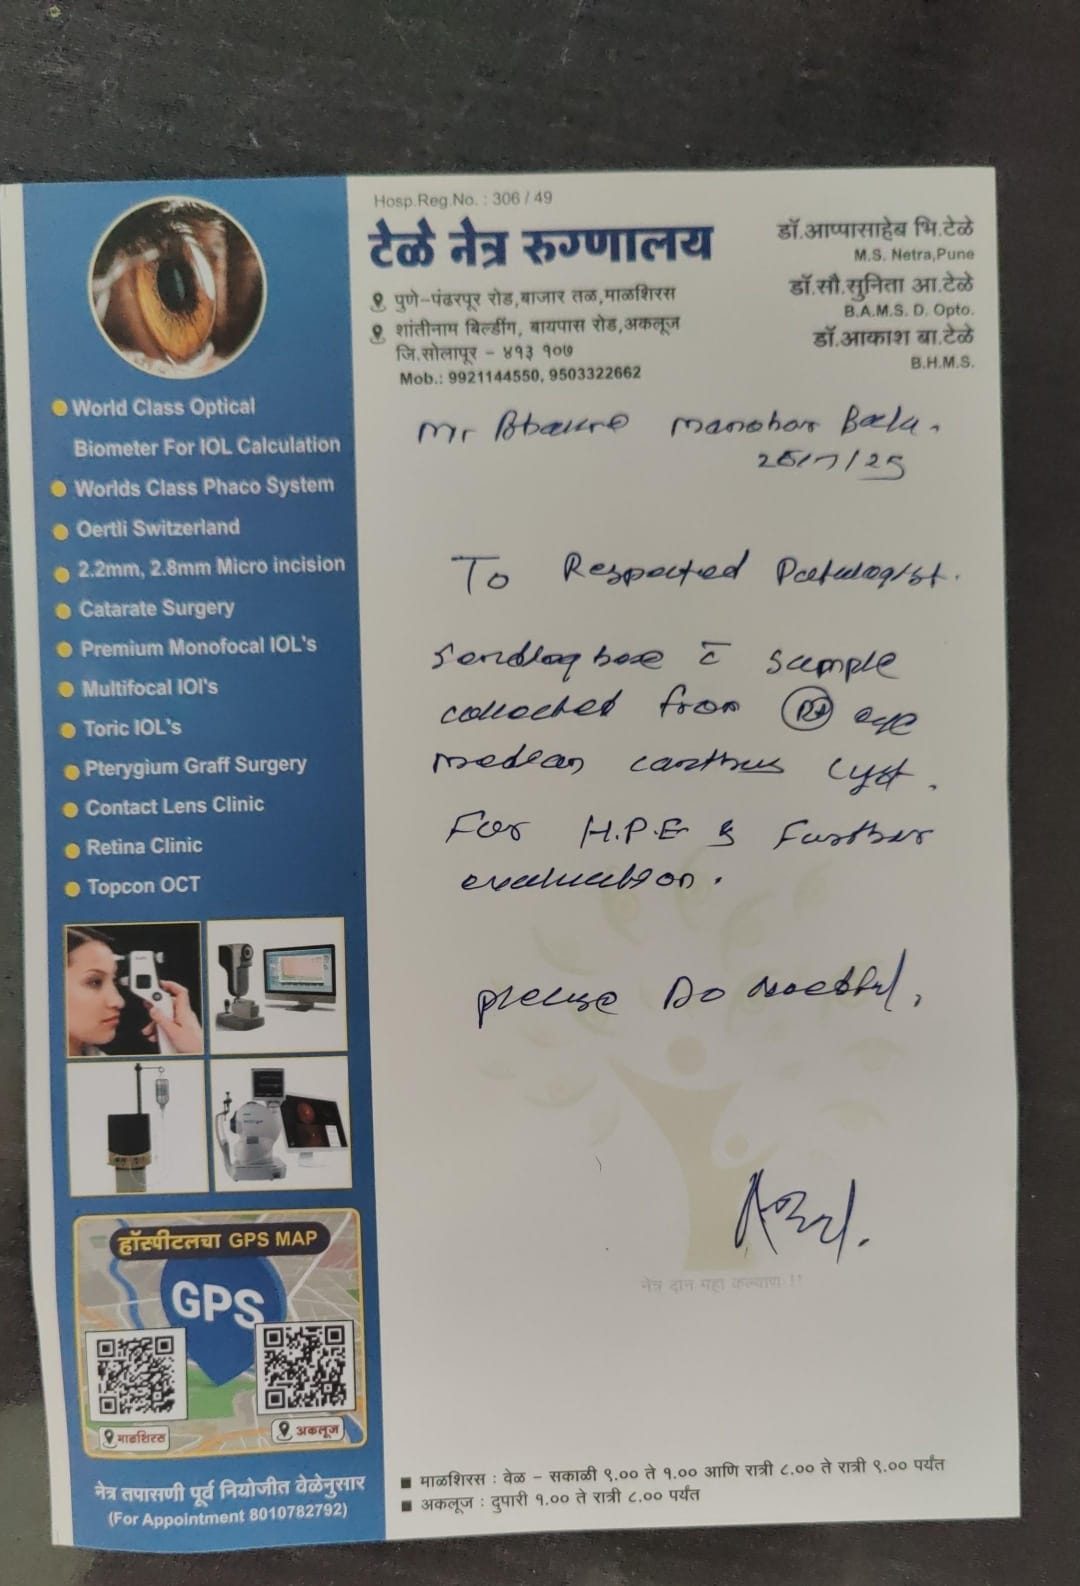 Hosp.Reg.No. : 306 / 49
टेळे नेत्र रुग्णालय
पुणे-पंढरपूर रोड,बाजार तळ,माळशिरस
शांतीनाम बिल्डींग, बायपास रोड,अकलूज
जि.सोलापूर - ४१३ १०७
Mob.: 9921144550, 9503322662
डॉ.आप्पासाहेब भि.टेळे
M.S. Netra,Pune
डॉ.सौ.सुनिता आ.टेळे
B.A.M.S. D. Opto.
डॉ.आकाश बा.टेळे
B.H.M.S.
World Class Optical
Biometer For IOL Calculation
Worlds Class Phaco System
Oertli Switzerland
2.2mm, 2.8mm Micro incision
Catarate Surgery
Premium Monofocal IOL's
Multifocal IOl's
Toric IOL's
Pterygium Graff Surgery
Contact Lens Clinic
Retina Clinic
Topcon OCT
हॉस्पीटलचा GPS MAP
GPS
माळशिरस
अकलूज
नेत्र तपासणी पूर्व नियोजीत वेळेनुसार
(For Appointment 8010782792)
Mr Manohar
/7/25
To Respected Pathologist.
Sending here c̄ sample
collected from Rt eye
median canthus cyst.
For H.P.E & further
evaluation.
please Do needful.
नेत्र दान महा कल्याण !!
माळशिरस : वेळ - सकाळी ९.०० ते १.०० आणि रात्री ८.०० ते रात्री ९.०० पर्यंत
अकलूज : दुपारी १.०० ते रात्री ८.०० पर्यंत